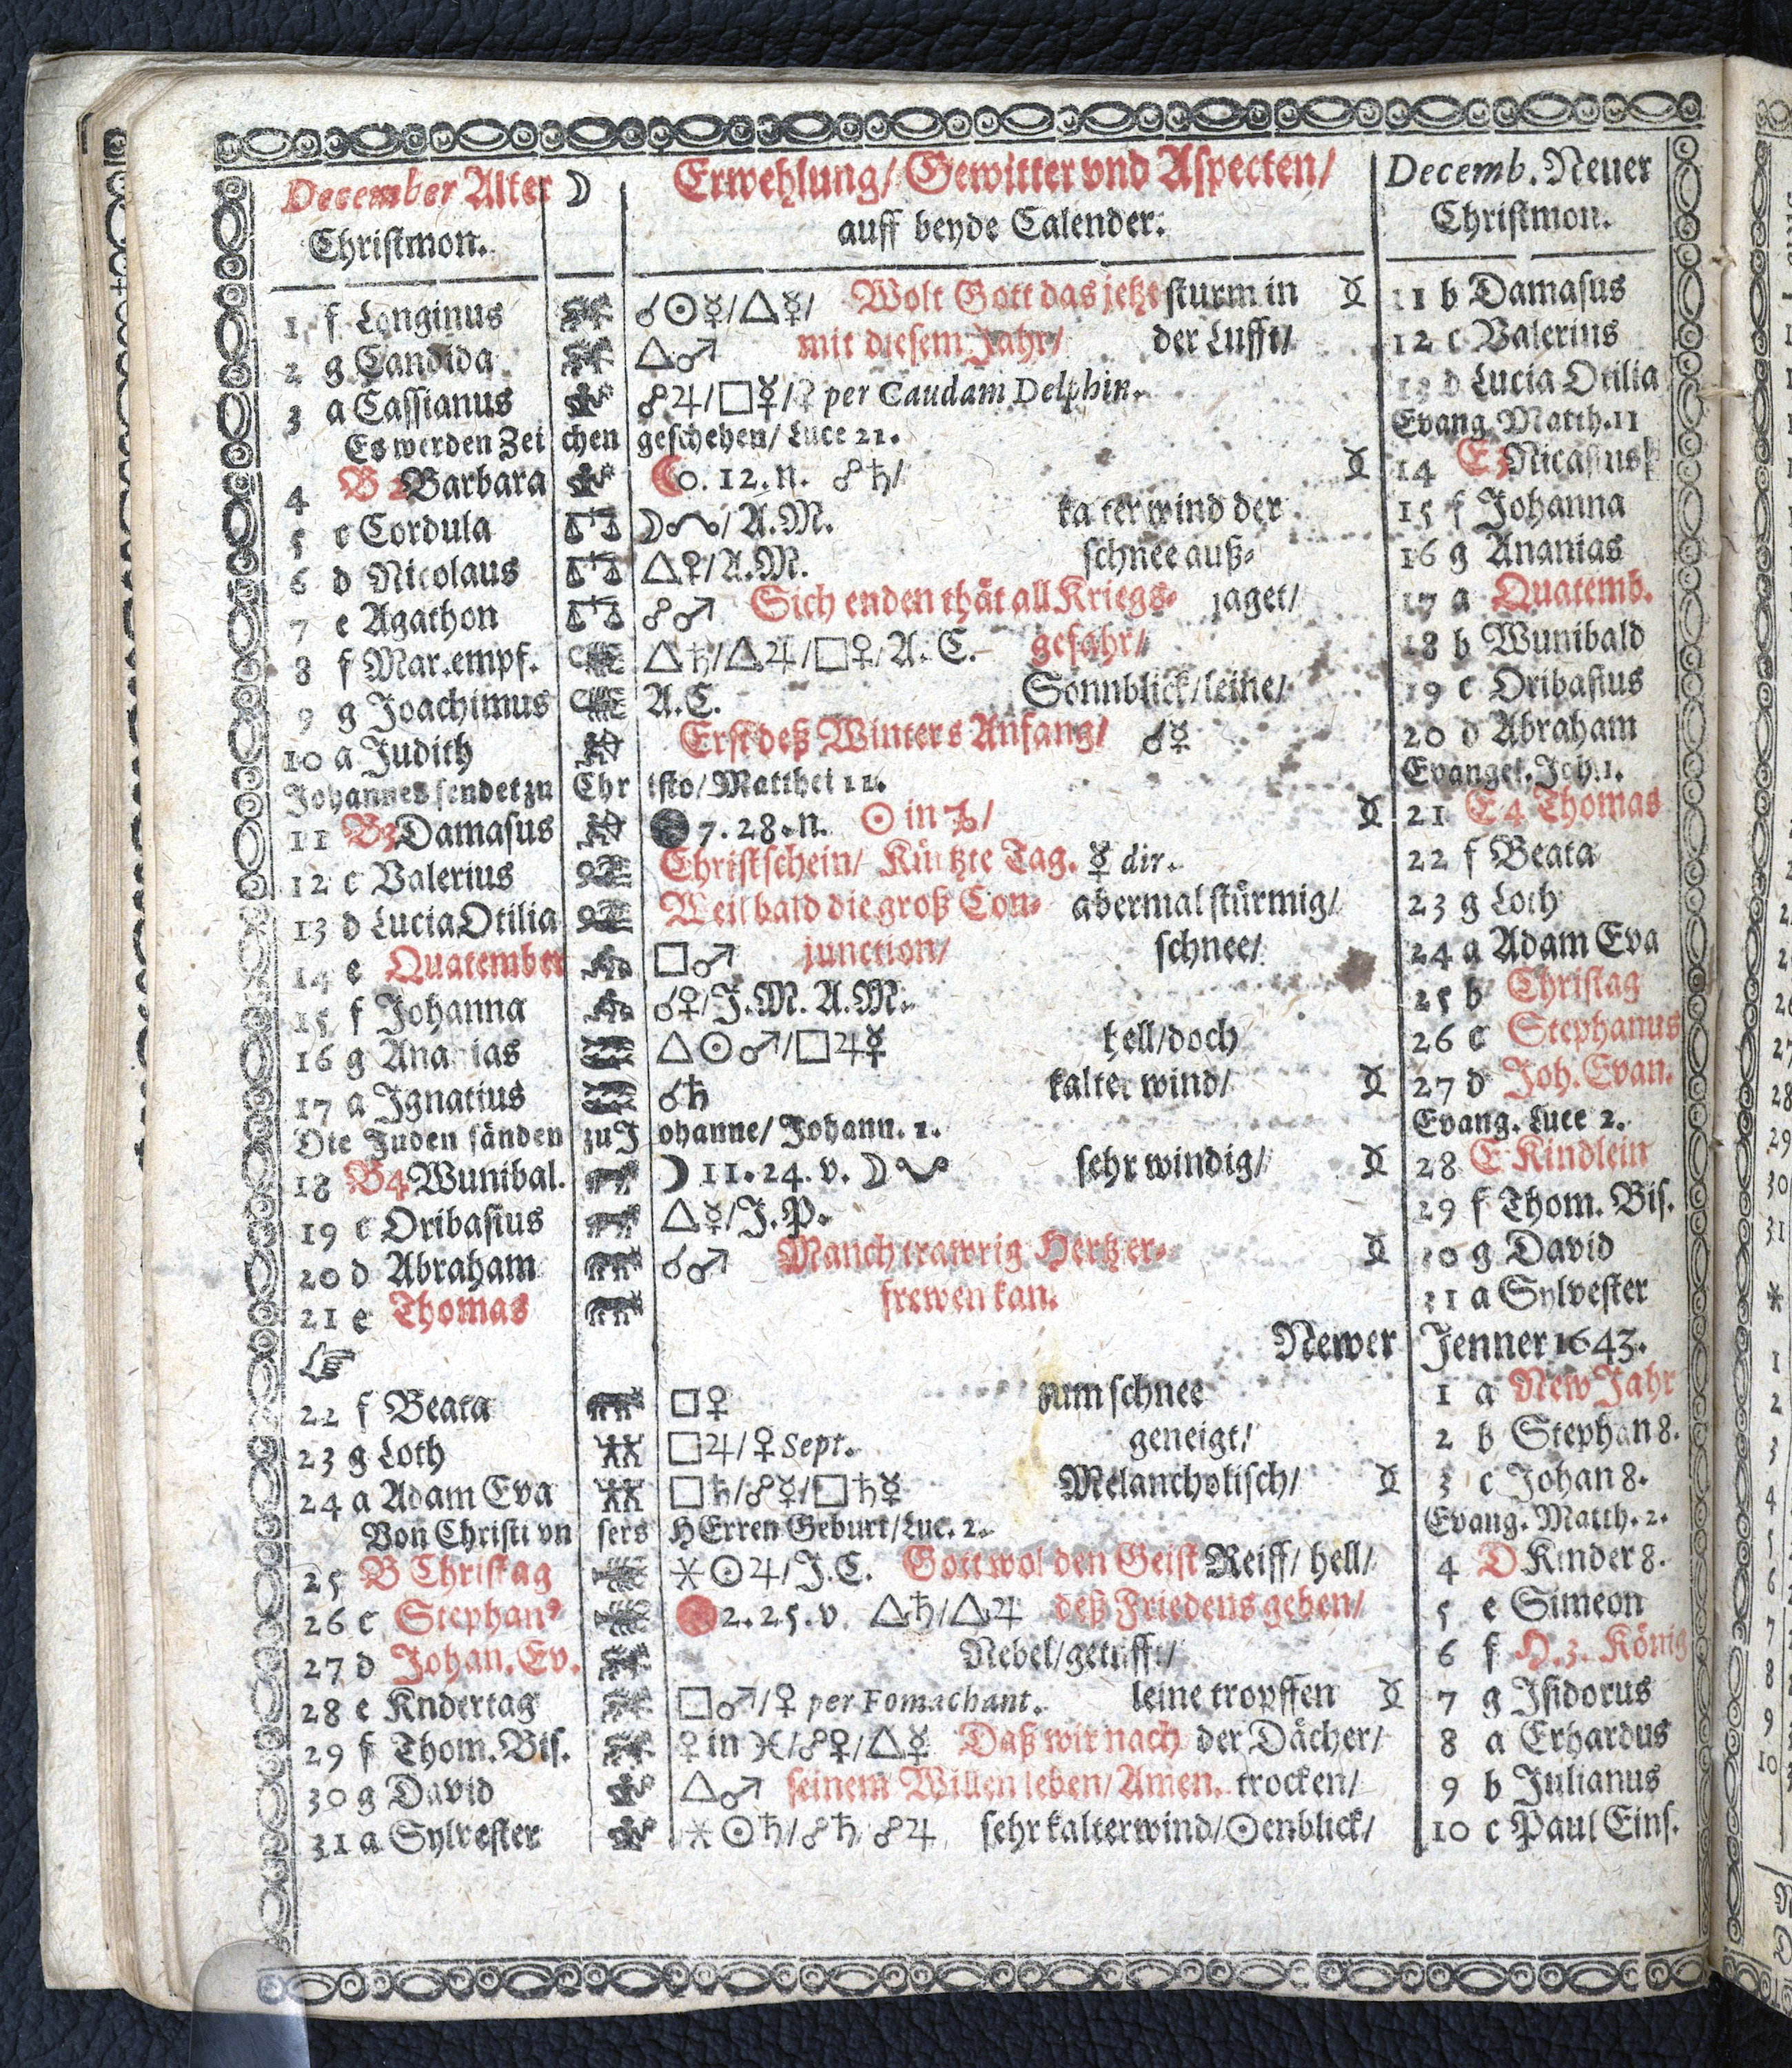 December Alter ☽ Erwehlung/ Gewitter vnd Aspecten/ Decemb. Neuer
Christmon. auff beyde Calender. Christmon.
1 f Longinus ☌☉☿/△☿/ Wolt Gott das jetzt sturm in 11 b Damasus
2 g Candida △♂ mit diesem Jahr/ der Lufft/ 12 c Valerius
3 a Cassianus ☍♃/□☿/♀ per Caudam Delphin. 13 d Lucia Otilia
Es werden Zeichen geschehen/ Luce 21. Evang. Matth. 11
4 B 2 Barbara ☾ 0. 12. n. ☍♄/ 14 E 3 Nicasius
5 c Cordula ☽☊/ A.M. kalter wind der 15 f Johanna
6 d Nicolaus △♀/ A.M. schnee auß- 16 g Ananias
7 e Agathon ☍♂ Sich enden thät all Kriegs- jaget/ 17 a Quatemb.
8 f Mar. empf. △♄/△♃/□♀/ A. C. gefahr/ 18 b Wunibald
9 g Joachimus A.C. Sonnblick/ leine/ 19 c Oribasius
10 a Judith Erst deß Winters Anfang/ ☌☿ 20 d Abraham
Johannes sendet zu Christo/ Matthei 11. Evangel. Joh. 1.
11 B3 Damasus ● 7. 28. n. ☉ in ♑/ 21 E 4 Thomas
12 c Valerius Christschein/ Kürtzte Tag. ☿ dir. 22 f Beata
13 d Lucia Otilia Weil bald die groß Con- abermal stürmig/ 23 g Loth
14 e Quatember □♂ junction/ schnee/ 24 a Adam Eva
15 f Johanna ☌♀/ J. M. A. M. 25 b Christag
16 g Ananias △☉♂/□♃☿ hell/ doch 26 c Stephanus
17 a Ignatius ☌♄ kalter wind/ 27 d Joh. Evan.
Die Juden sänden zu Johanne/ Johann. 1. Evang. Luce 2.
18 B4 Wunibal. ☽ 11. 24. v. ☽☋ sehr windig/ 28 E Kindlein
19 c Oribasius △☿/ J. P. 29 f Thom. Bis.
20 d Abraham ☌♂ Manch trawrig Hertz er- 30 g David
21 e Thomas frewen kan. 31 a Sylvester
☞ Newer Jenner 1643.
22 f Beata □♀ zum schnee 1 a New Jahr
23 g Loth □♃/♀ Sept. geneigt/ 2 b Stephan 8.
24 a Adam Eva □♄/☍☿/□♄☿ Melancholisch/ 3 c Johan 8.
Von Christi vnsers HErren Geburt/ Luc. 2. Evang. Matth. 2.
25 B Christag ⚹☉♃/ J. C. Gott wol den Geist Reiff/ hell/ 4 D Kinder 8.
26 c Stephan⁹ 2. 25. v. △♄/△♃ deß Friedens geben/ 5 e Simeon
27 d Johan. Ev. Nebel/ 6 f H. 3. König
28 e Kndertag □♂/♀ per Fomachant. leine tropffen 7 g Isidorus
29 f Thom. Bis. ♀ in ♓/☍♀/△☿ Daß wir nach der Dächer/ 8 a Erhardus
30 g David △♂ seinem Willen leben/ Amen. trocken/ 9 b Julianus
31 a Sylvester ⚹☉♄/☍♄ ☍♃ sehr kalter wind/ ☉enblick/ 10 c Paul Eins.